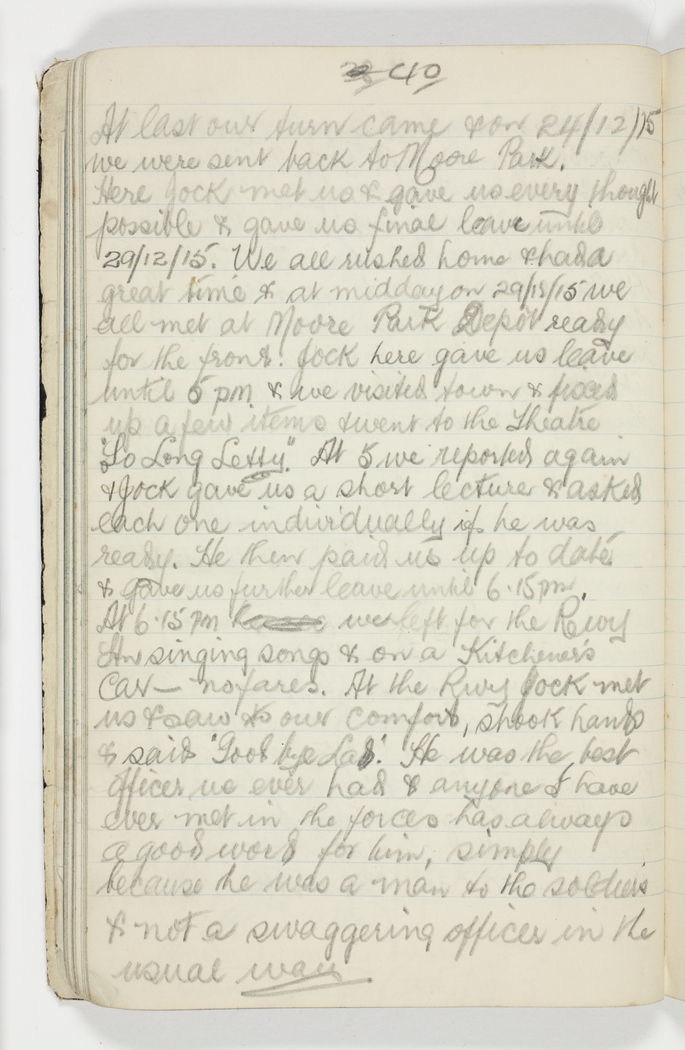 40
At last our turn came & on 24/12/15
we were sent back to Moore Park.
Here Jock met us & gave us every thought
possible & gave us final leave until
29/12/15. We all rushed home & had a
great time & at midday on 29/12/15 we
all met at Moore Park Depôt ready
for the front. Jock here gave us leave
until 5 pm & we visited town & fixed
up a few items & went to the Theatre
"So Long Letty". At 5 we reported again
& Jock gave us a short lecture & asked
each one individually if he was
ready. He then paid us up to date
& gave us further leave until 6.15 pm.
At 6.15 pm we left for the Rwy
Stn singing songs & on a Kitchener's
Car — no fares. At the Rwy Jock met
us & saw to our comfort, shook hands
& said "Good bye Lads". He was the best
officer we ever had & anyone I have
ever met in the forces has always
a good word for him, simply
because he was a man to the soldiers
& not a swaggering officer in the
usual way